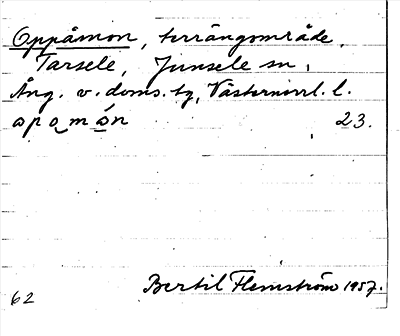 Oppåmon, terrängområde,
Tarsele, Junsele sn,
Ång. v. doms. tg, Västernorrl. l.
opomón 23.
Bertil Flemström 1957.
62